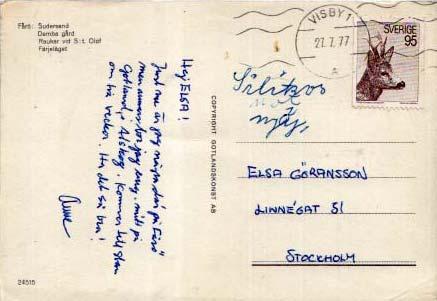 Fårö: Sudersand
Damba gård
Raukar vid S:t Olof
Färjeläget
Hej ELSA!
Just nu är jag några dar på Fårö
men annars bor jag mitt på
Gotland, i Alskog. Kommer till stan
om tre veckor. Ha det så bra!
Anne
24515
COPYRIGHT GOTLANDSKONST AB
VISBY 1
27.7.77
SVERIGE
95
ELSA GÖRANSSON
LINNÉGAT 51
STOCKHOLM